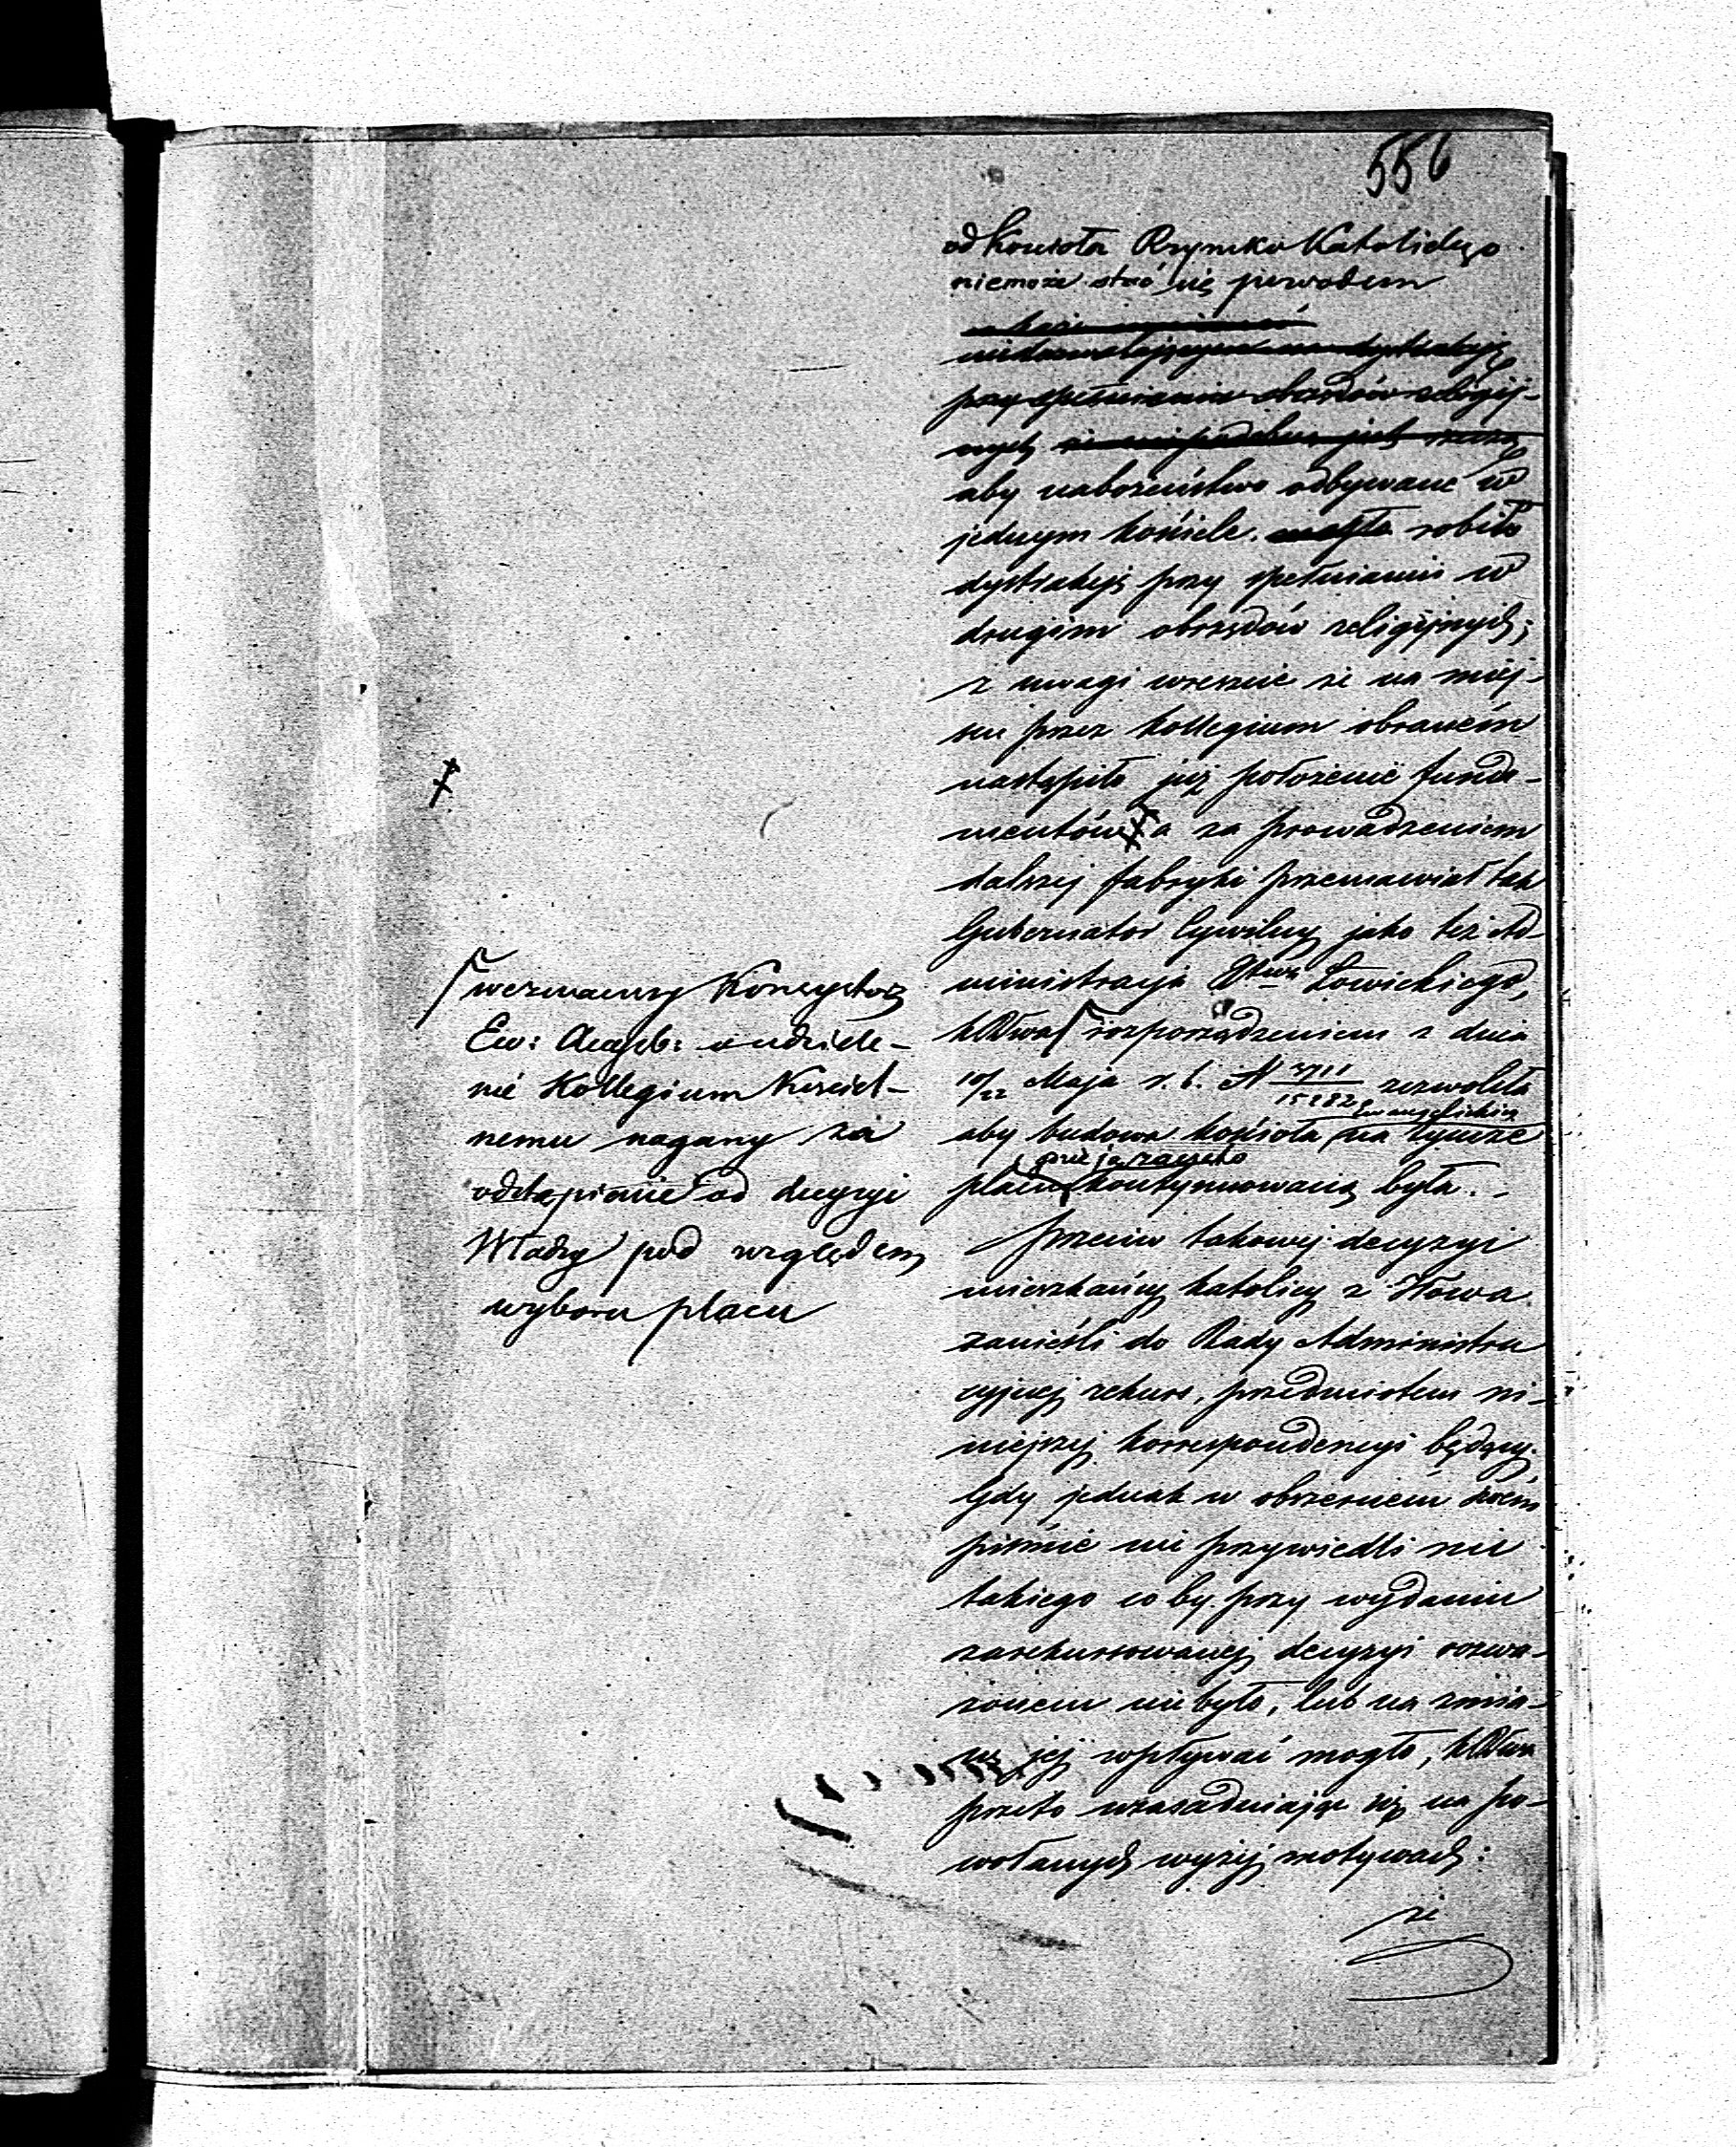 556
od Kościoła Rzymsko Katolickiego
niemoże stać się powodem
przy spełnianiu obrzędów religij-
nych
aby nabożeństwo odbywane w
jednym kościele. mogło robiło
dystrakcyę przy spełnianiu w
drugim obrzędów religijnych;
z uwagi wreszcie że na miej-
scu przez Kollegium obraném
nastąpiło już położenie funda-
mentów a za prowadzeniem
dalszej fabryki przemawiał tak
Gubernator Cywilny jako też Ad-
ministracya Xtwa Łowickiego,
KRząd rozporządzeniem z dnia
10/22 Maja r. b. N 3711/15282 zezwoliła
ewangelickiego
aby budowa kościoła na tymże
gdzie ją zaczęto
placu kontynuowaną była.
Przeciw takowej decyzyi
mieszkańcy katolicy z Iłowa
zanieśli do Rady Administra
cyjnej rekurs, przedmiotem ni-
niejszej korrespondencyi będący.
Gdy jednak w obszerném swém
piśmie nie przywiedli nic
takiego co by przy wydaniu
zarekursowanej decyzyi rozwa-
żoném nie było, lub na zmia-
nę jej wpływać mogło,
przeto uzasadniając się na po-
wołanych wyżej motywach:
że
wezwawszy Konsystorz
Ew: Augsb: o udziele-
nié Kollegium Kościel-
nemu nagany za
odstąpienie od decyzyi
Władzy pod względem
wyboru placu